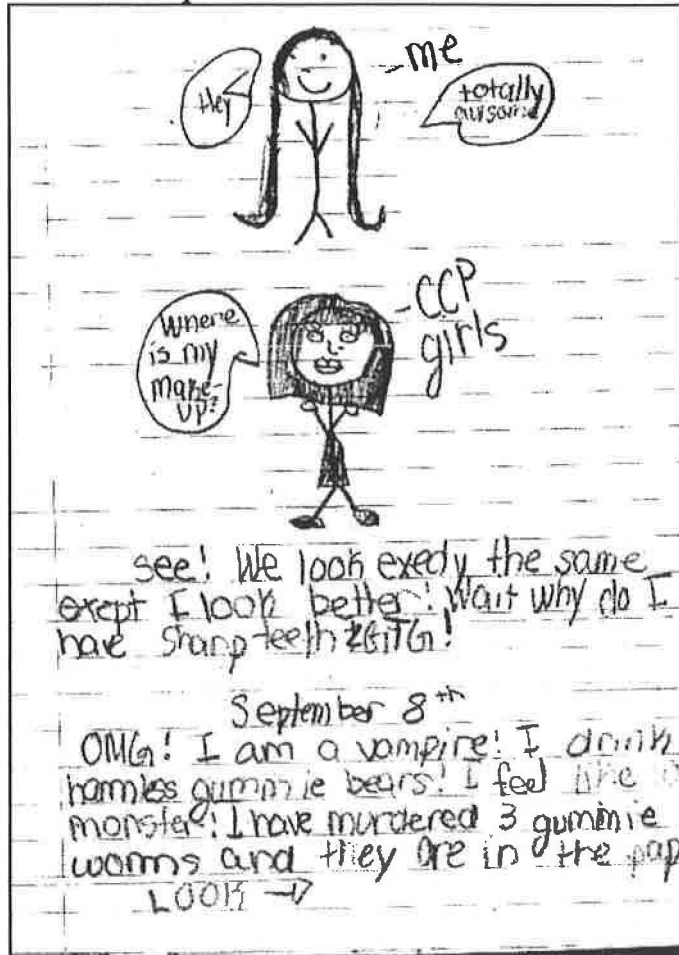 me
Hey
totally
awsome
CCP
girls
Where
is my
make-
up?
see! We look exedy the same
exept I look better! Wait why do I
have sharp teeth GTG!
September 8th
OMG! I am a vampire! I drink
harmless gummie bears! I feel like a
monster! I have murdered 3 gummie
worms and they are in the pap
LOOK →